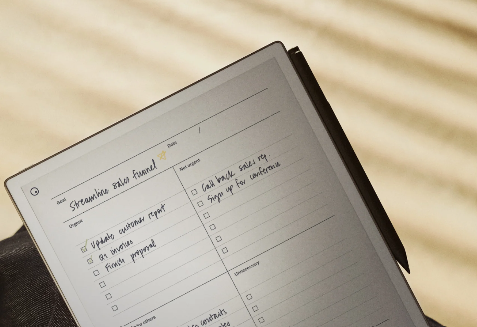 Goal
Streamline sales funnel
Date
/
Urgent
Update customer report
Q1 invoices
Finish proposal
Not urgent
Call back sales rep
Sign up for conference
Unnecessary
contacts